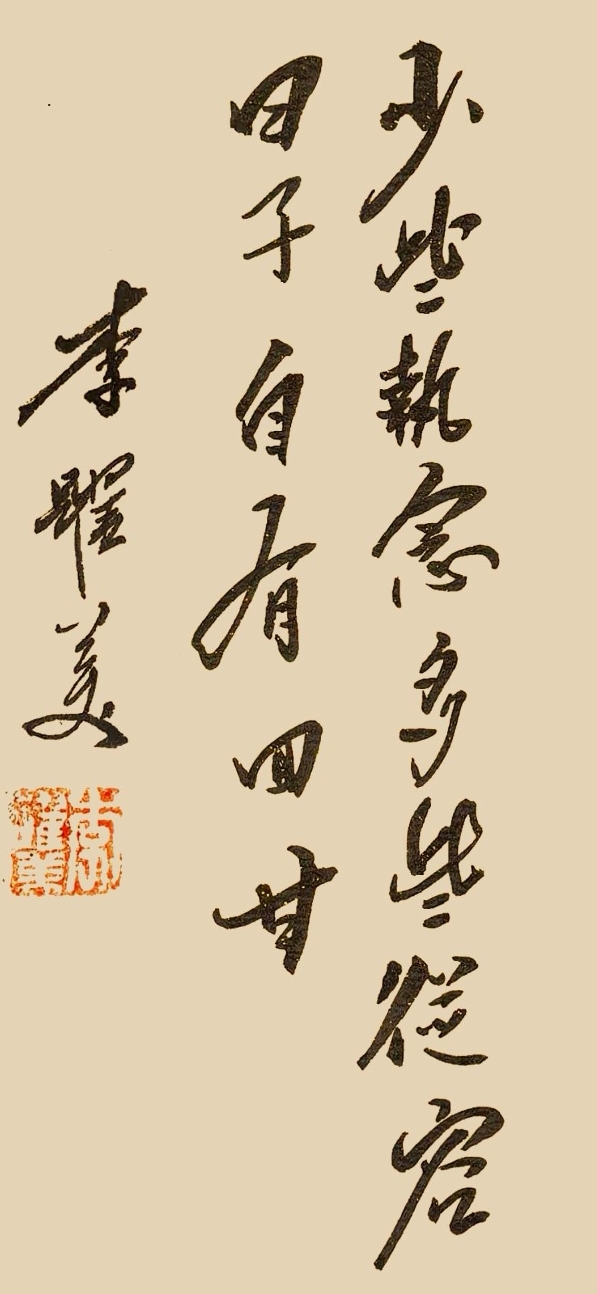 少些執念多些從容
日子自有回甘
李耀美